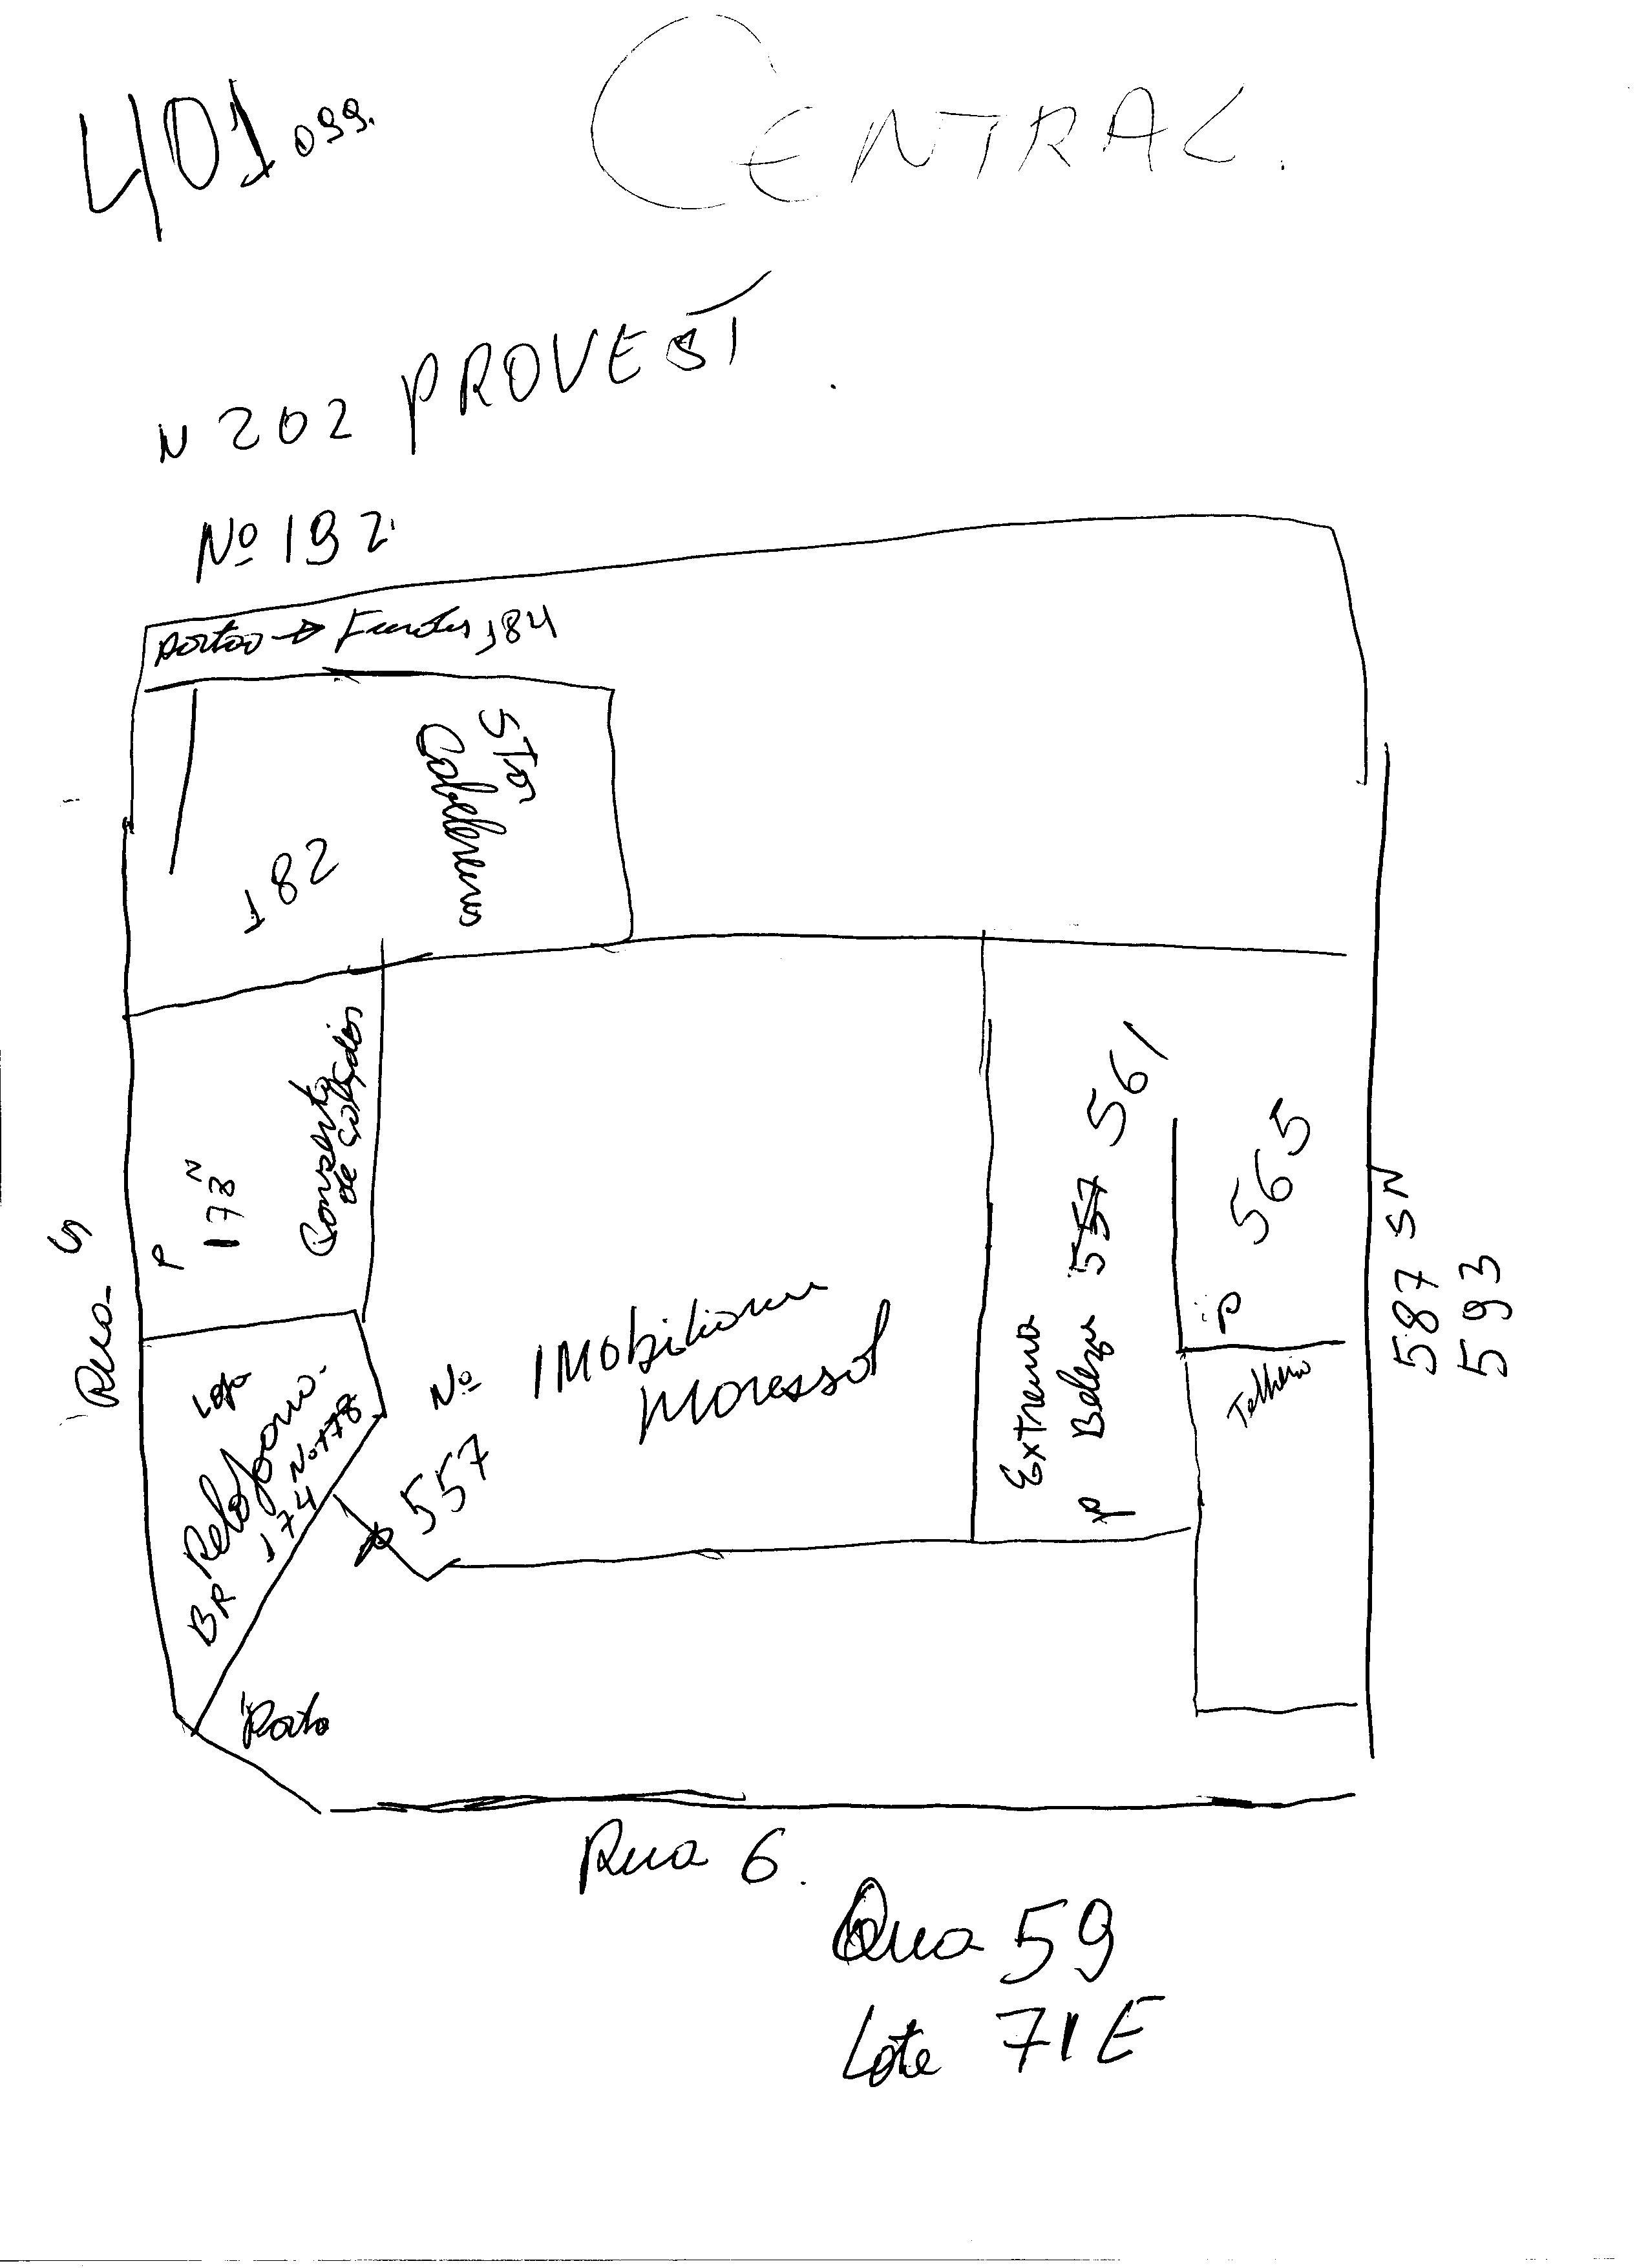 401 099.
CENTRAL.
N 202 PROVEST
Nº 192
portão → Fundos 184
STOP
Cabeleireiros
182
561
565
Conserto
de calçados
N
178
P
Rua 5
SN
587
593
Extrema
P Beleza 557
P
Telheiro
Imobiliaria
Moressol
Nº
557
Loja
Relojoaria
Nº 178
174
BR
Porta
Rua 6.
Qua 59
Lote 71E